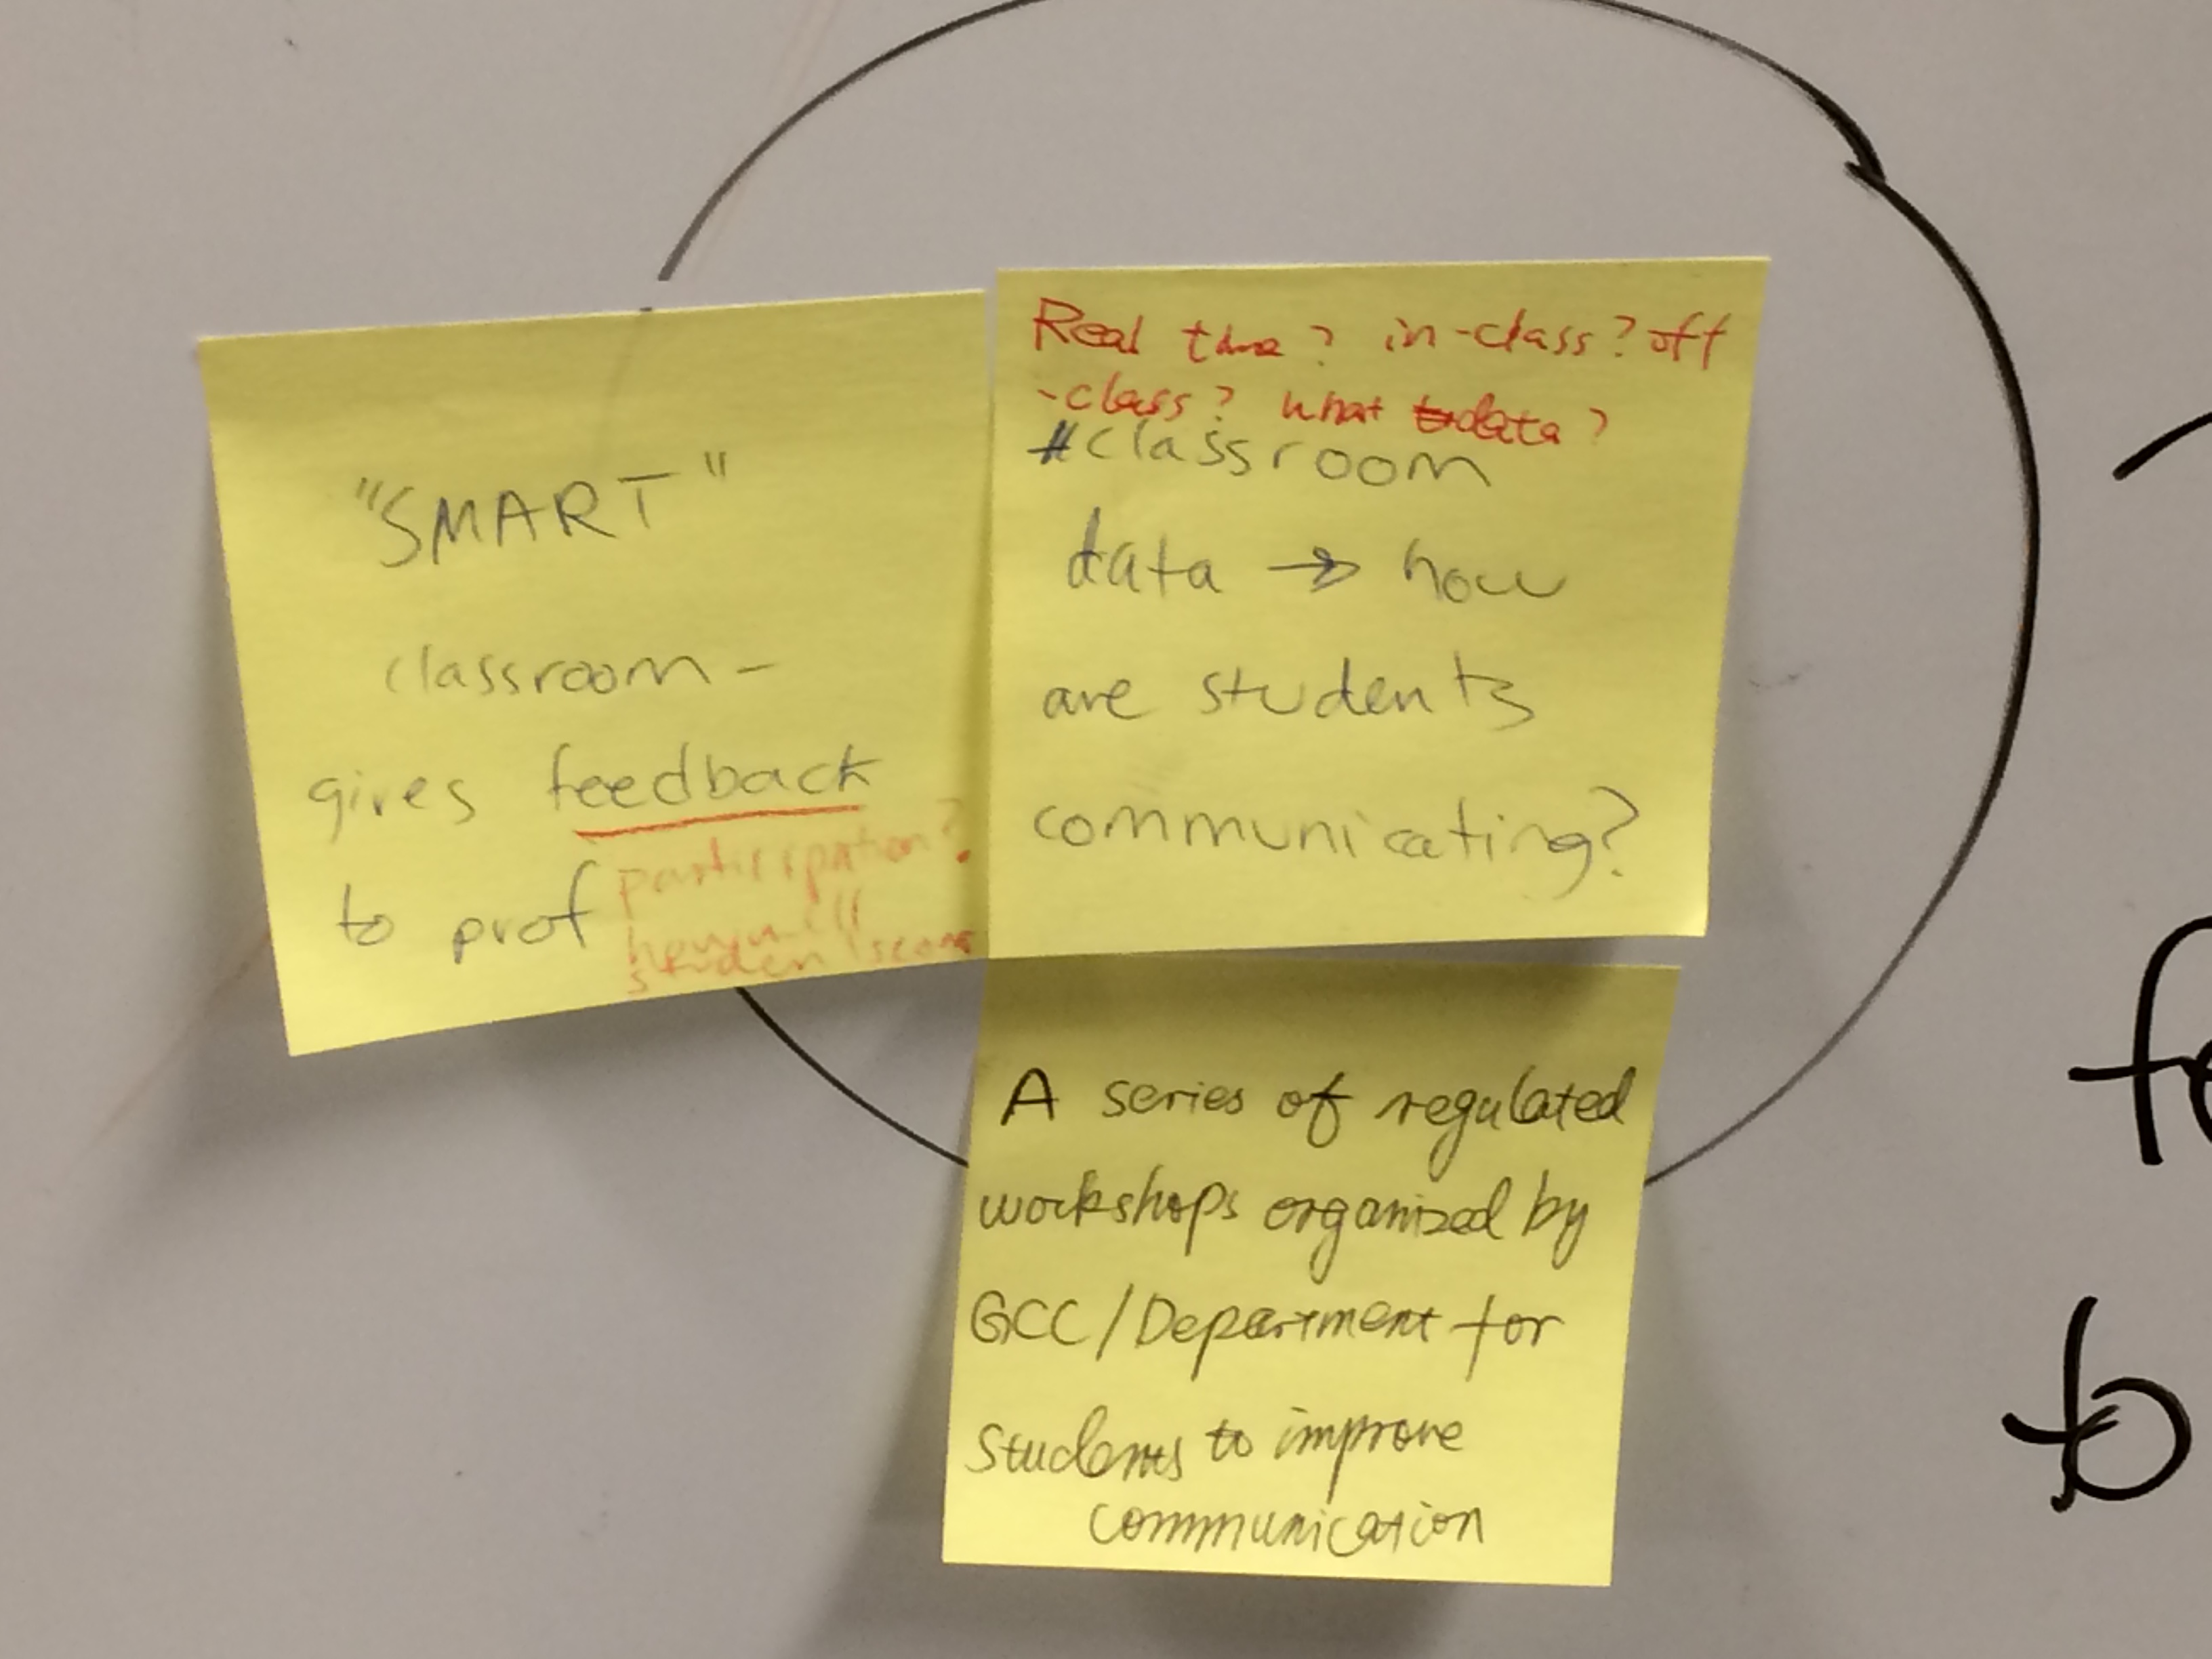 "SMART"
classroom -
gives feedback
to prof
participation?
how will
studen score
Real time? in-class? off
-class? what data?
#classroom
data → how
are students
communicating?
A series of regulated
workshops organized by
GCC/Department for
Students to improve
communication
to